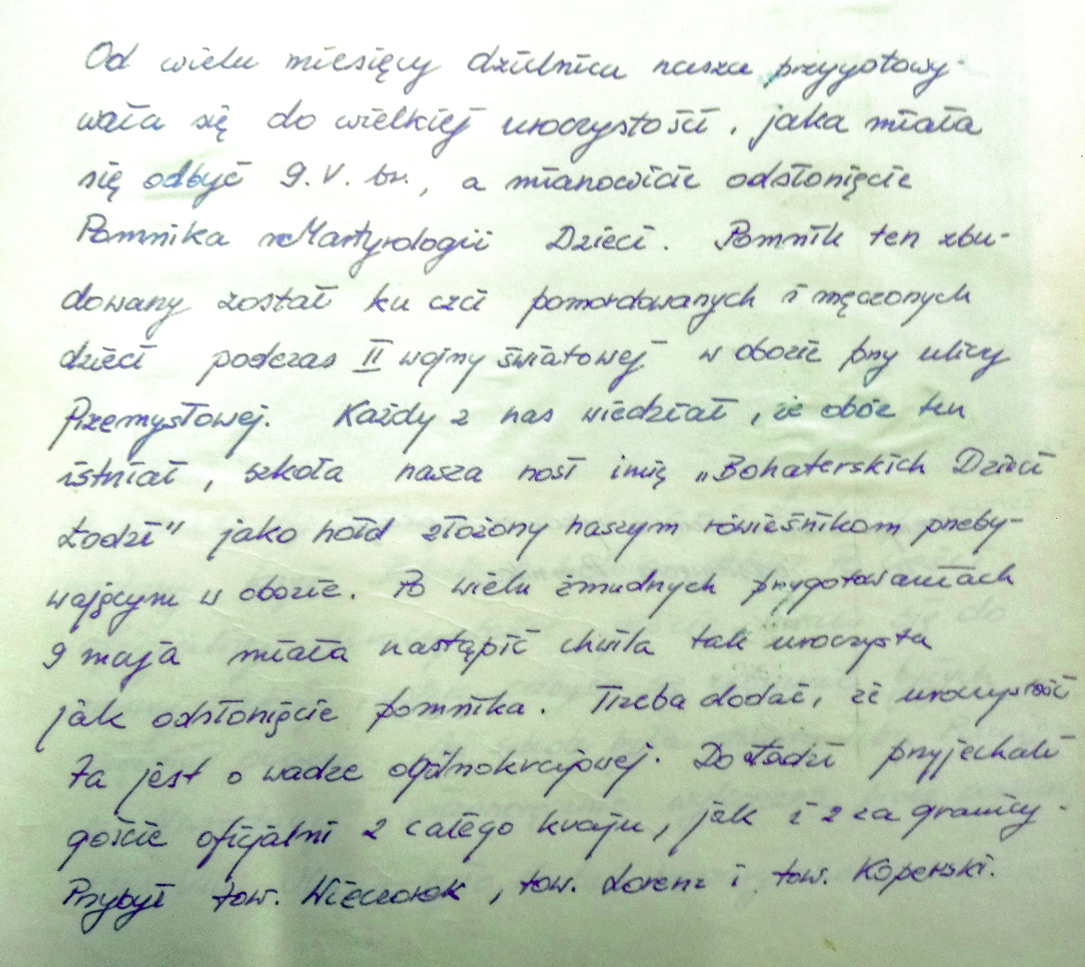 Od wielu miesięcy dzielnica nasza przygotowy-
wała się do wielkiej uroczystości, jaka miała
się odbyć 9.V. br., a mianowicie odsłonięcie
Pomnika Martyrologii Dzieci. Pomnik ten zbu-
dowany został ku czci pomordowanych i męczonych
dzieci podczas II wojny światowej w obozie przy ulicy
Przemysłowej. Każdy z nas wiedział, że obóz ten
istniał, szkoła nasza nosi imię „Bohaterskich Dzieci
Łodzi" jako hołd złożony naszym rówieśnikom przeby-
wającym w obozie. Po wielu żmudnych przygotowaniach
9 maja miała nastąpić chwila tak uroczysta
jak odsłonięcie pomnika. Trzeba dodać, że uroczystość
ta jest o wadze ogólnokrajowej. Do Łodzi przyjechali
goście oficjalni z całego kraju, jak i z za granicy.
Przybył tow. Wieczorek, tow. Lorenz i tow. Koperski.